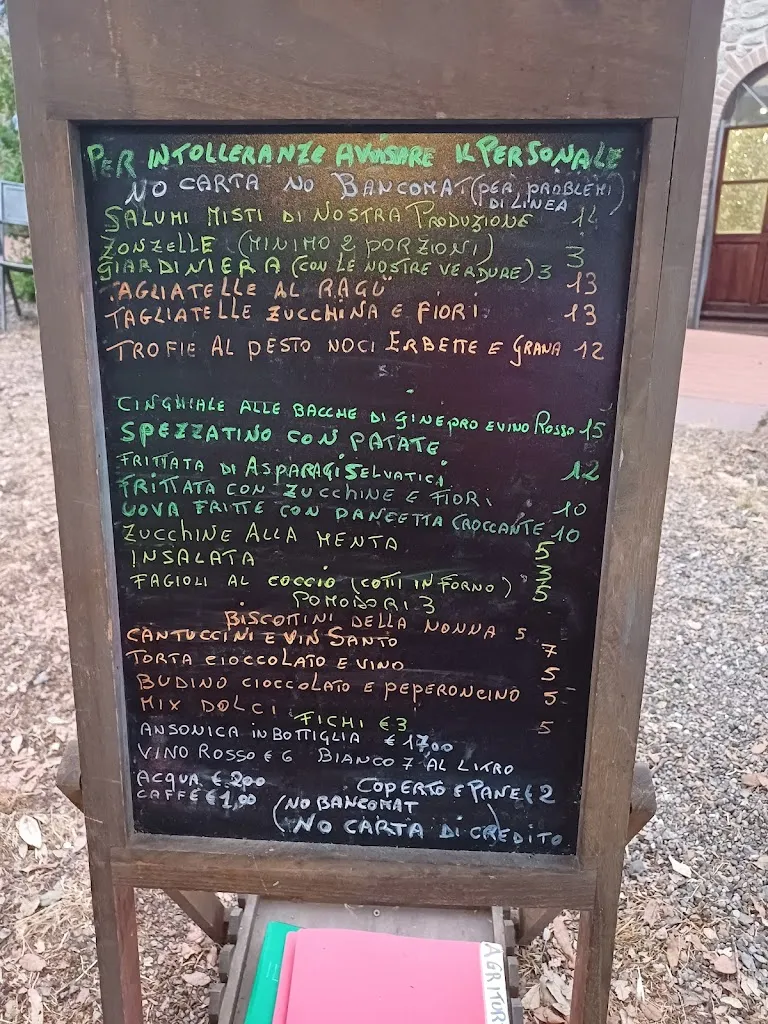 PER INTOLLERANZE AVVISARE IL PERSONALE
NO CARTA NO BANCOMAT (PER PROBLEMI DI LINEA)
SALUMI MISTI DI NOSTRA PRODUZIONE 14
ZONZELLE (MINIMO 2 PORZIONI) 3
GIARDINIERA (CON LE NOSTRE VERDURE) 3
TAGLIATELLE AL RAGÙ 13
TAGLIATELLE ZUCCHINA E FIORI 13
TROFIE AL PESTO NOCI ERBETTE E GRANA 12
CINGHIALE ALLE BACCHE DI GINEPRO E VINO ROSSO 15
SPEZZATINO CON PATATE
FRITTATA DI ASPARAGI SELVATICI 12
FRITTATA CON ZUCCHINE E FIORI 10
UOVA FRITTE CON PANCETTA CROCCANTE 10
ZUCCHINE ALLA MENTA 5
INSALATA 3
FAGIOLI AL COCCIO (COTTI IN FORNO) 5
POMODORI 3
BISCOTTINI DELLA NONNA 5
CANTUCCINI E VIN SANTO 7
TORTA CIOCCOLATO E VINO 5
BUDINO CIOCCOLATO E PEPERONCINO 5
MIX DOLCI 5
FICHI € 3
ANSONICA IN BOTTIGLIA € 17,00
VINO ROSSO € 6 BIANCO 7 AL LITRO
ACQUA € 2,00
CAFFÈ € 1,00
COPERTO E PANE € 2
(NO BANCOMAT
NO CARTA DI CREDITO)
AGRITUR